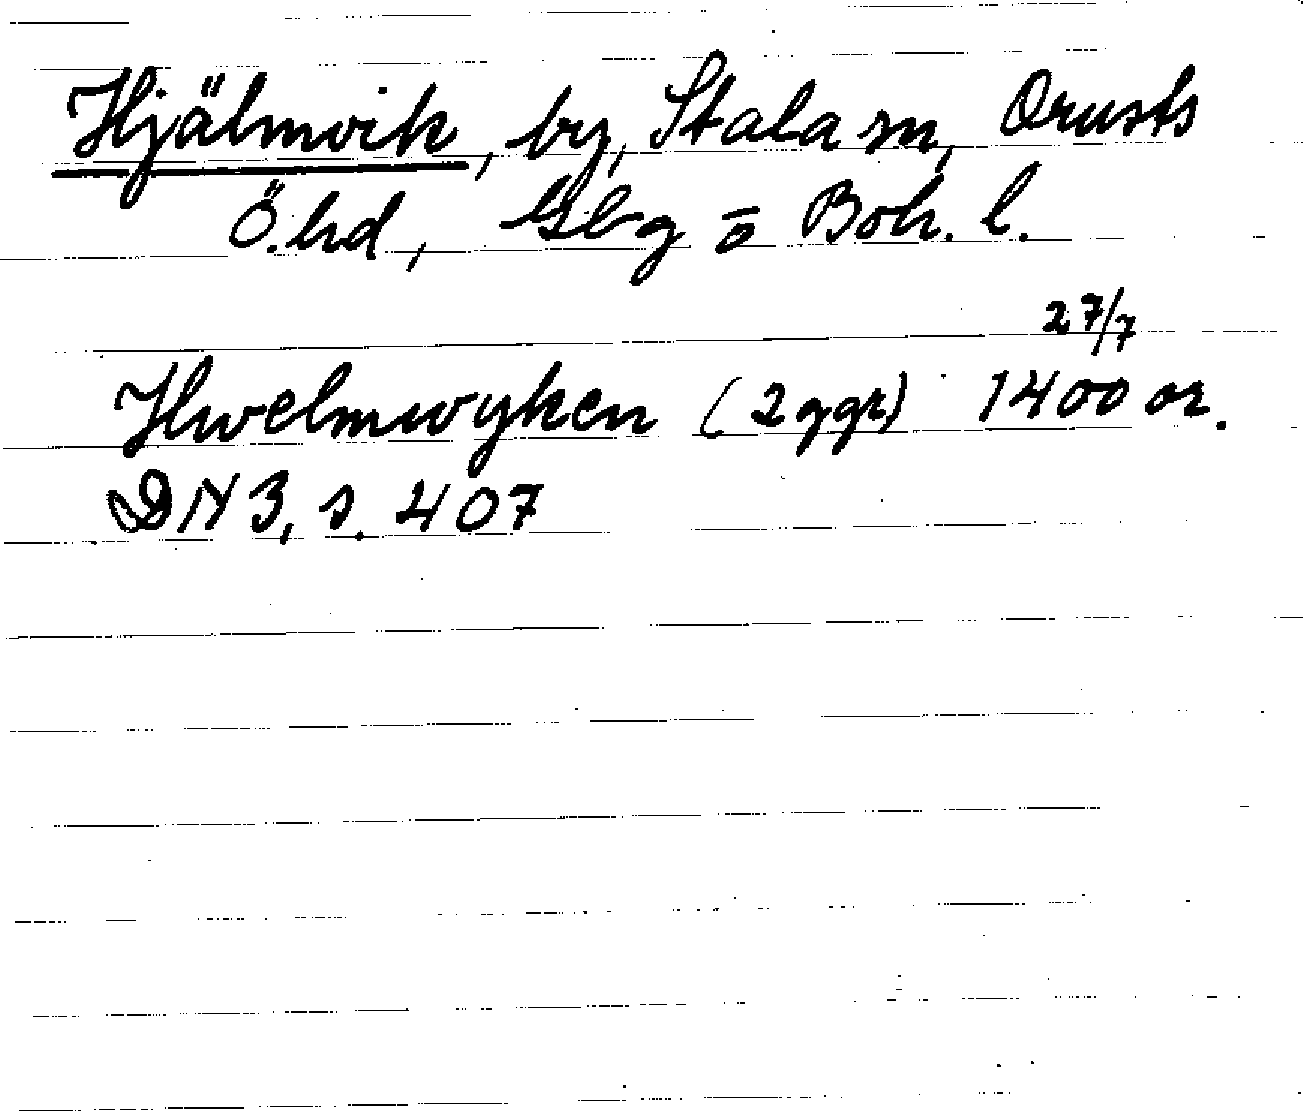 Hjälmvik, by, Stala sn, Orusts
Ö. hd, Gbg o Boh. l.
27/7
Hwelmwyken (2 ggr) 1400 or.
DN 3, s. 407